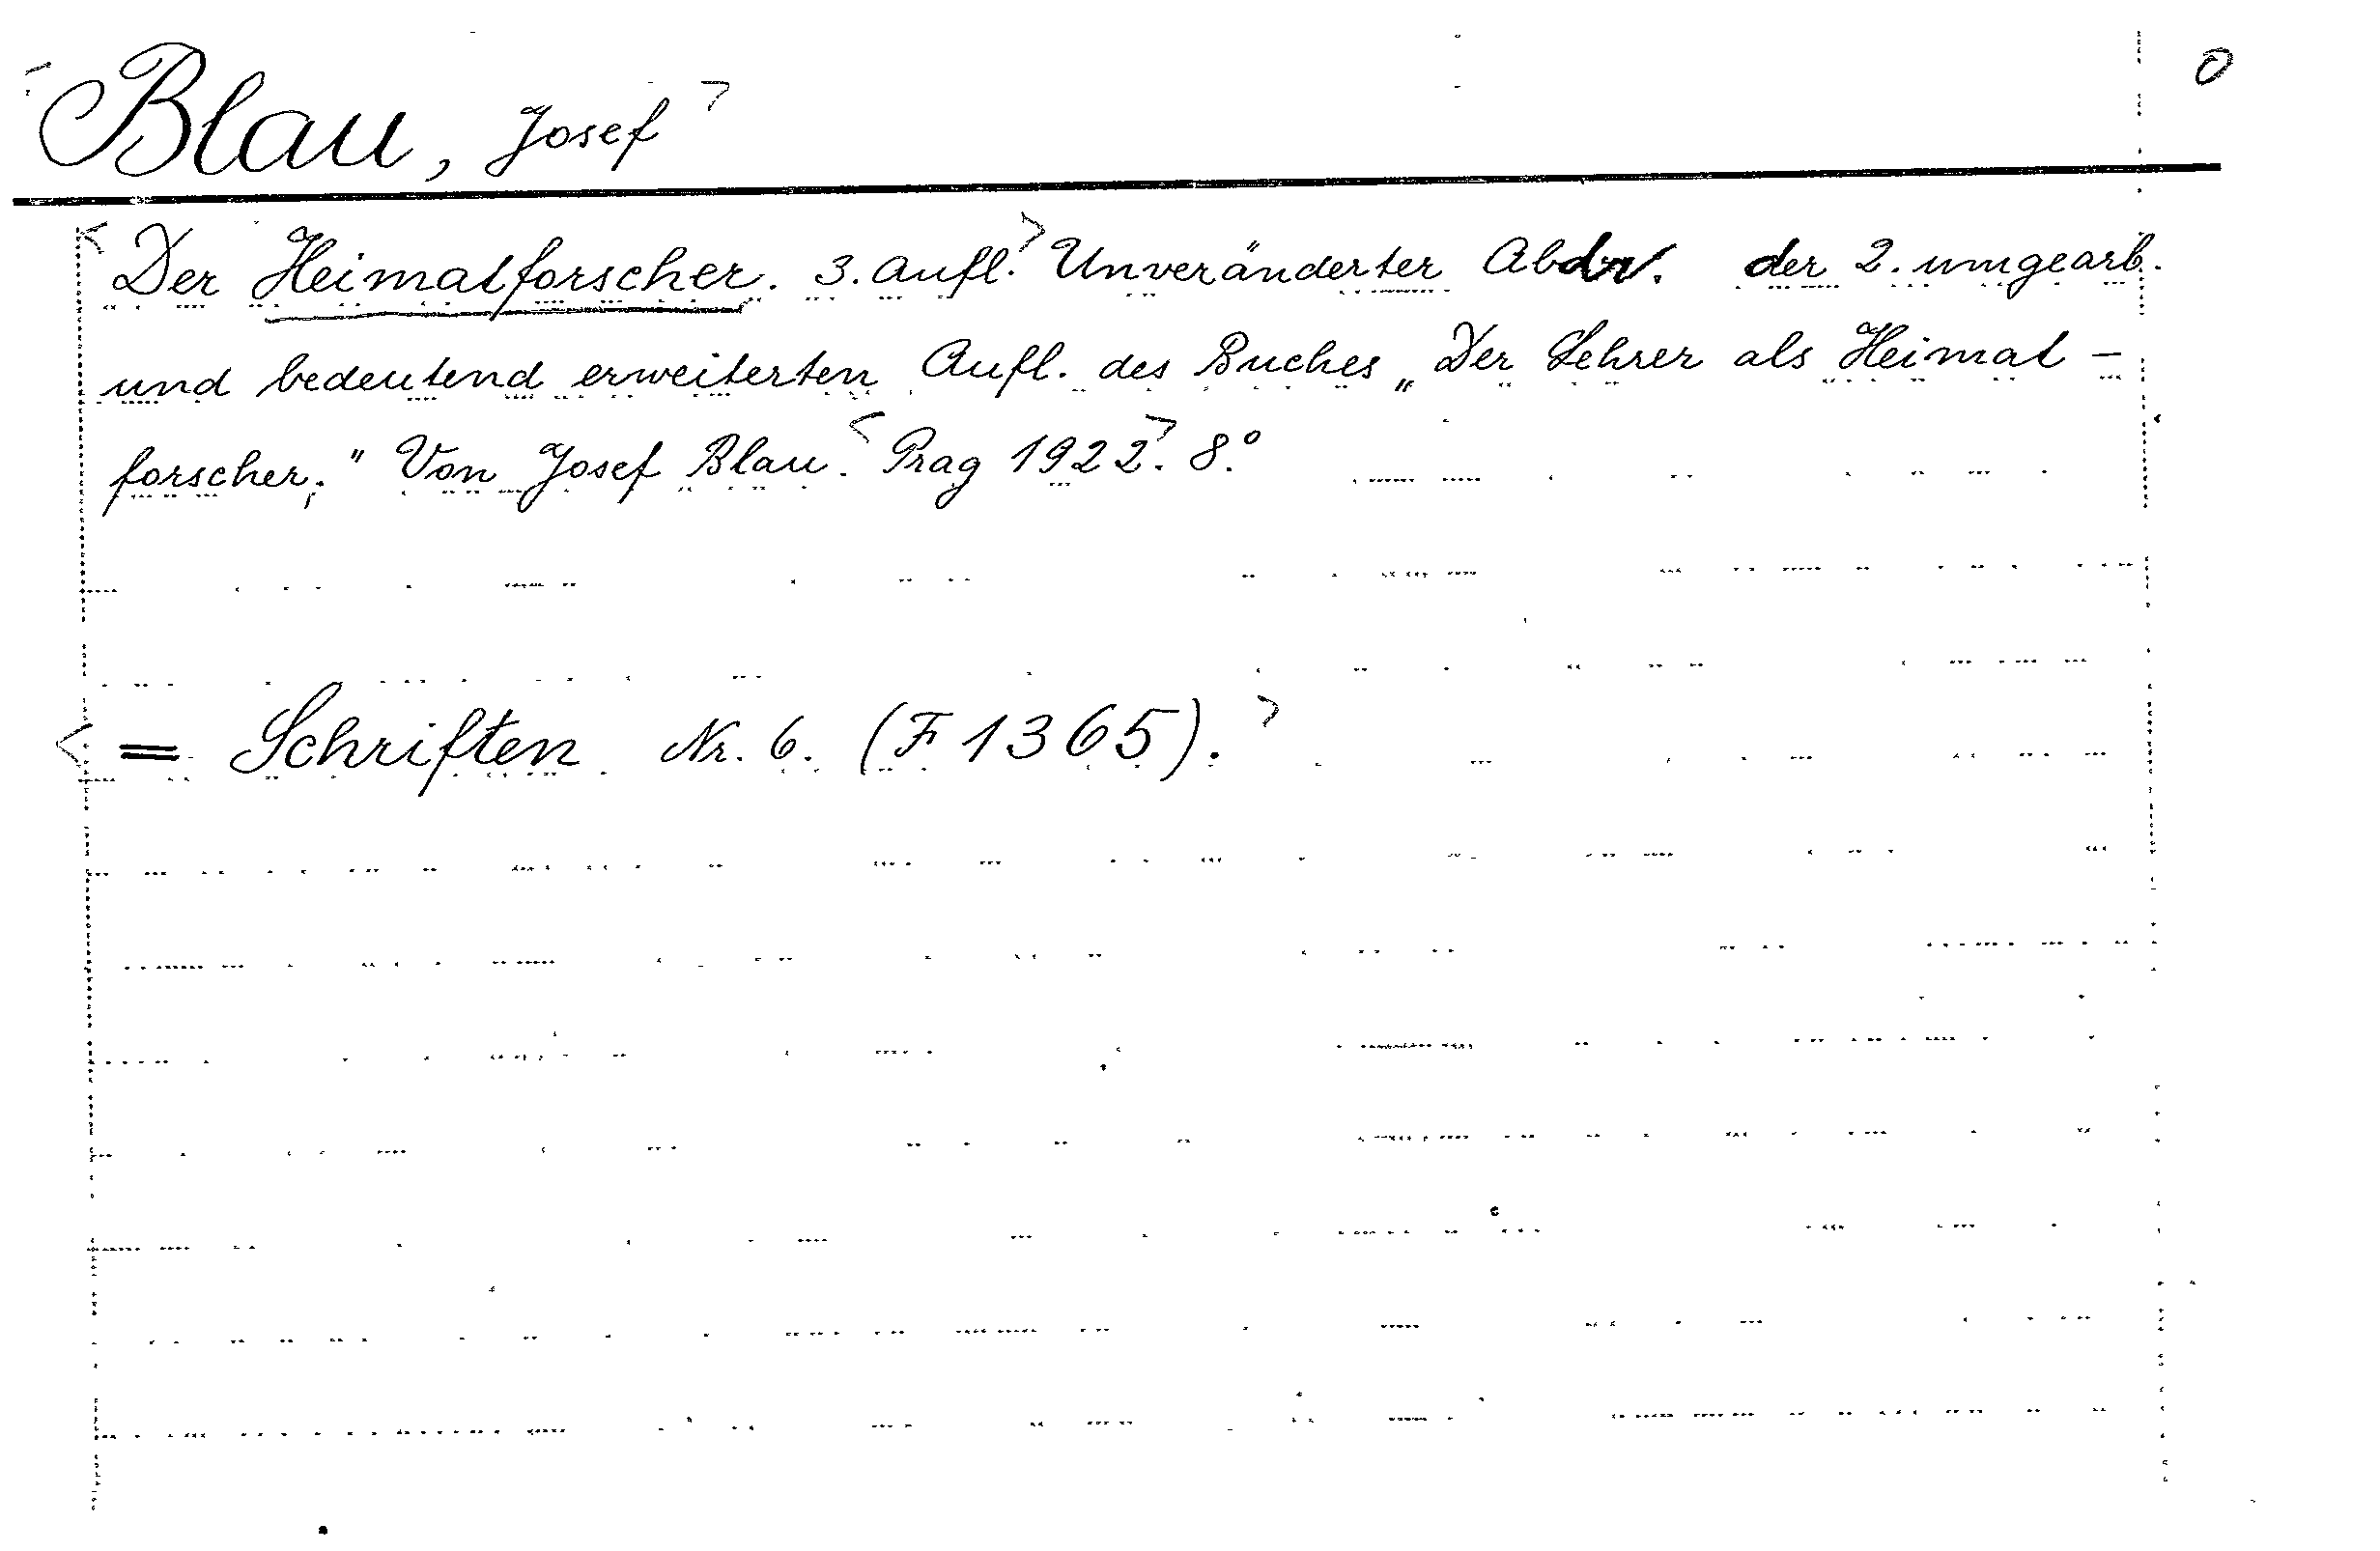 <Blau, Josef> 0
<Der Heimatforscher. 3. Aufl.> Unveränderter Abdr. der 2. umgearb.
und bedeutend erweiterten Aufl. des Buches „Der Lehrer als Heimat-
forscher;" Von Josef Blau. <Prag 1922>. 8.°
<= Schriften Nr. 6. (F 1365).>